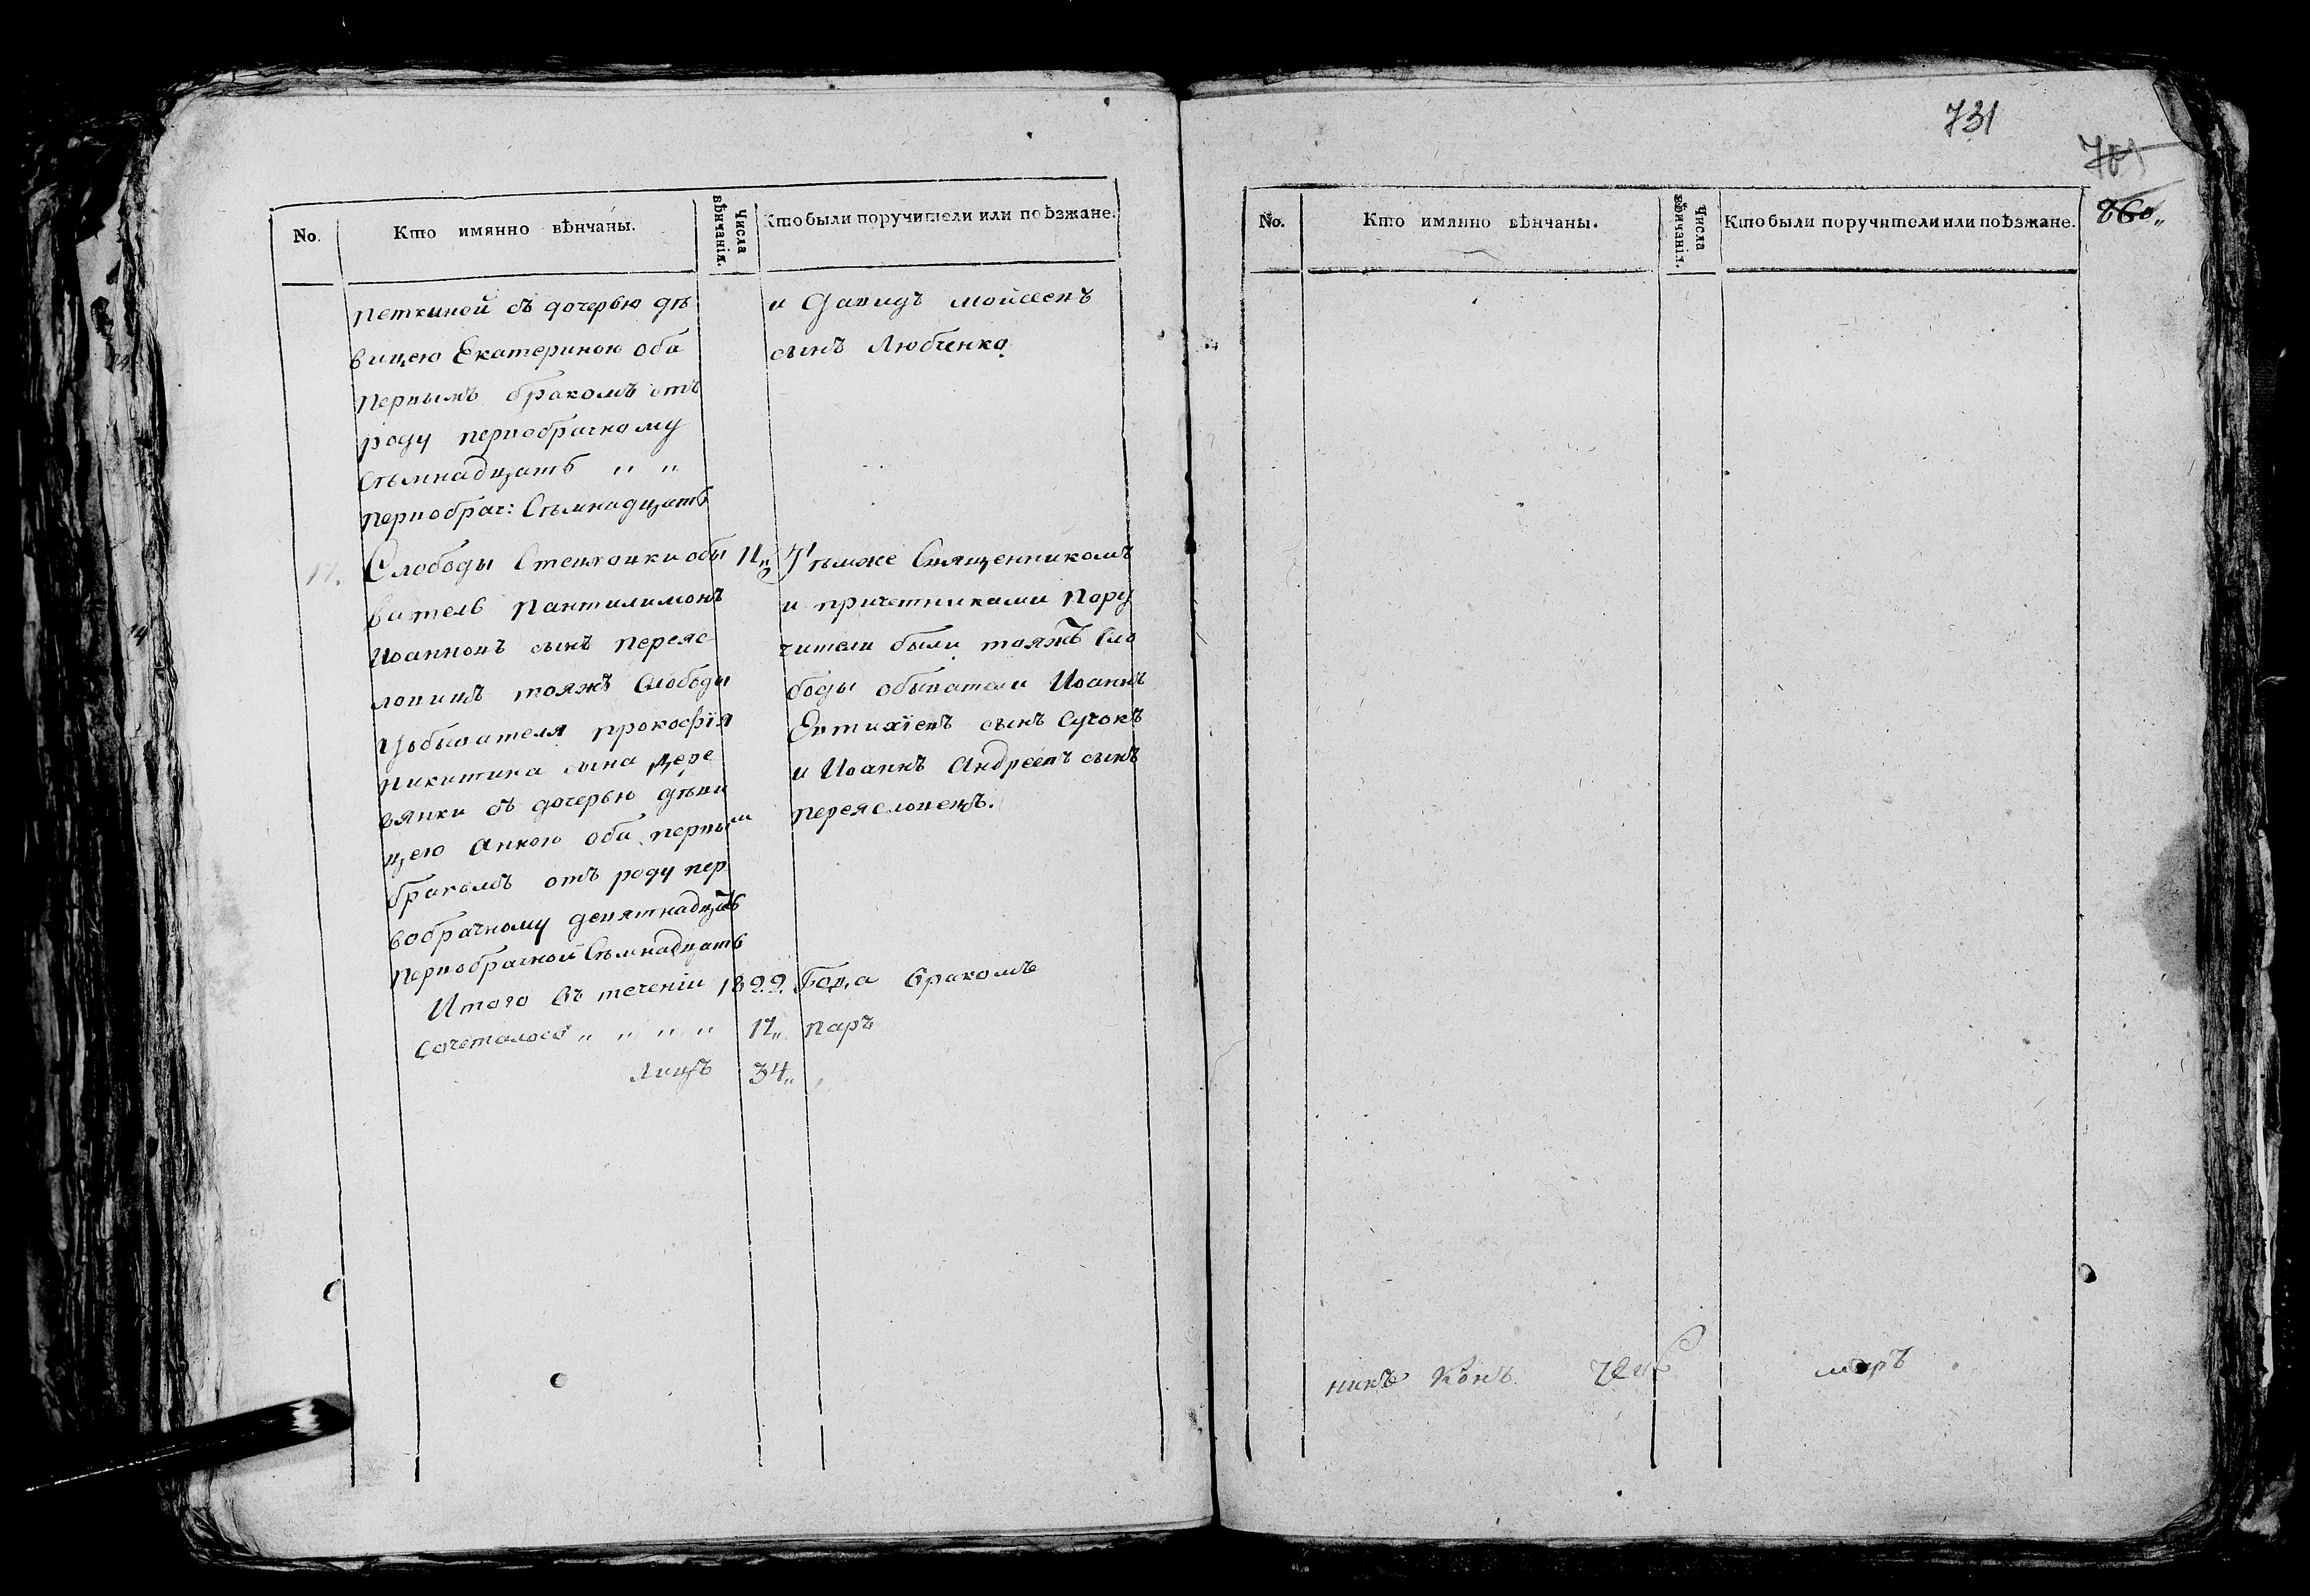 No.
Кто имянно вѣнчаны.
Числа вѣнчанія.
Кто были поручители или поѣзжане.
Петкиной съ дочерью дѣ
вицею Екатериною оба
первымъ бракомъ отъ
роду первобрачному
Сѣмнадцать „ „
первобрач: Сѣмнадцать
и Давидъ Мойсеевъ
сынъ Любченко
17.
Слободы обы
ватель Пантилимонъ
Иоанновъ сынъ Переяс
ловицъ тояжъ Слободы
обывателя Прокофія
Никитина сына Дере
вянки съ дочерью дѣви
цею Анною оба первым
бракомъ отъ роду пер
вобрачному девятнадцать
первобрачной Сѣмнадцать
Тѣмже Священникомъ
и причетниками Пору
чители были тояжъ Сло
боды обыватели Иоаннъ
Евтихіевъ сынъ Сучокъ
и Иоаннъ Андреевъ сынъ
Переясловецъ.
Итого въ теченіи 1822. Года бракомъ
Сочеталось „ „ „ „ 17„ паръ
Лицъ 34„
731
860„
No.
Кто имянно вѣнчаны.
Числа вѣнчанія.
Кто были поручители или поѣзжане.
никъ